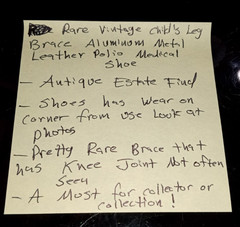 Rare Vintage Child's Leg
Brace Aluminum Metal
Leather Polio Medical
Shoe
- Antique Estate Find
- Shoes has wear on
corner from use Look at
photos
- Pretty Rare Brace that
has Knee Joint Not often
Seen
- A Must for collector or
collection!